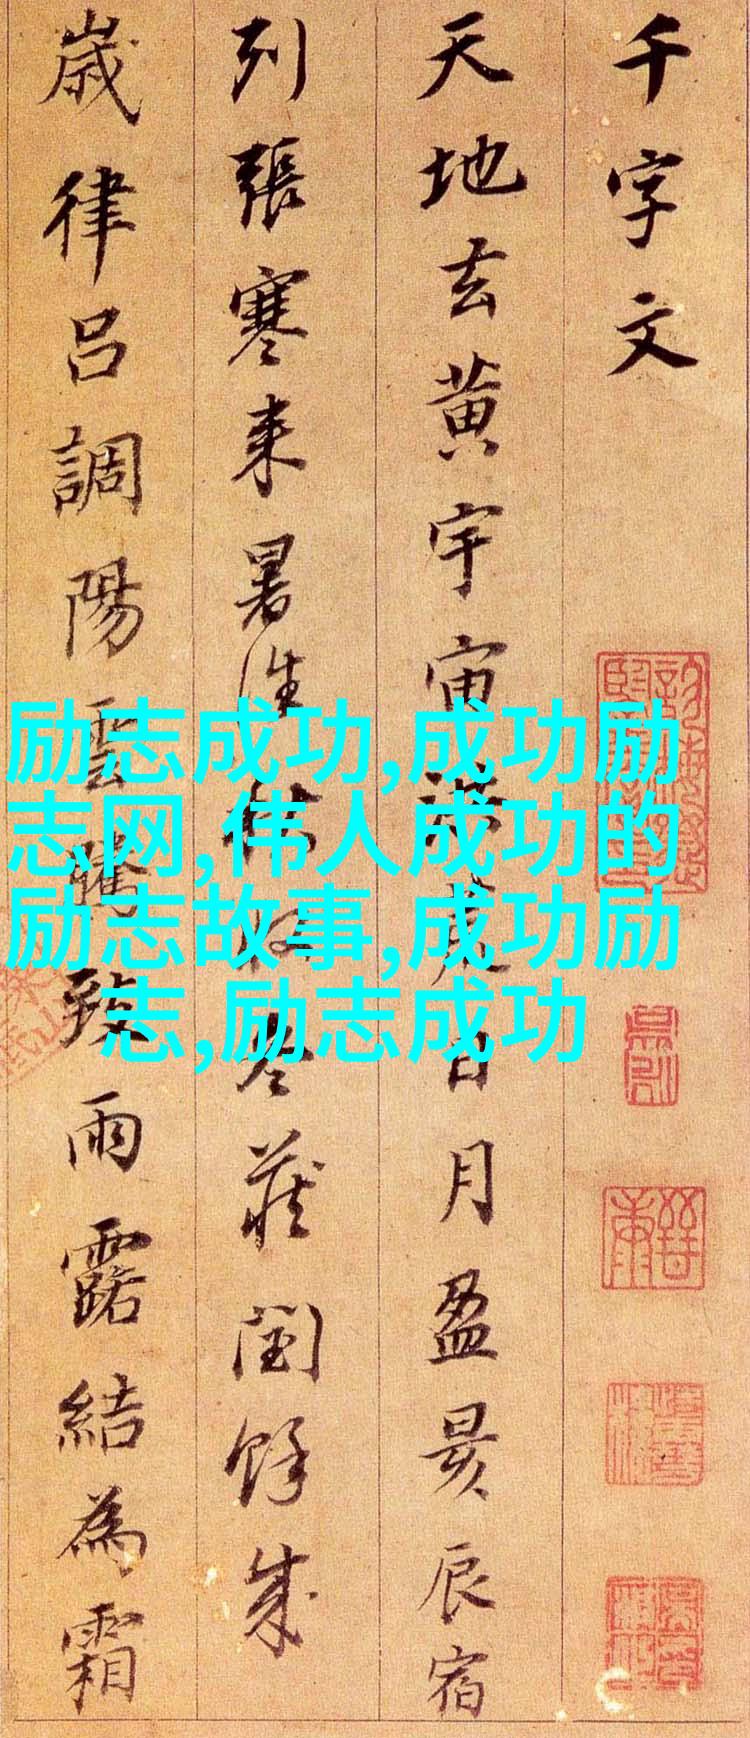 千字文
天地玄黄宇宙洪荒日月盈昃辰宿
列張寒来暑往秋收冬蔵閏餘成
歳律吕調陽雲騰致雨露結為霜
励志成功,成功励
志网,伟人成功的
励志故事,成功励
志,励志成功